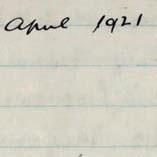 April 1921